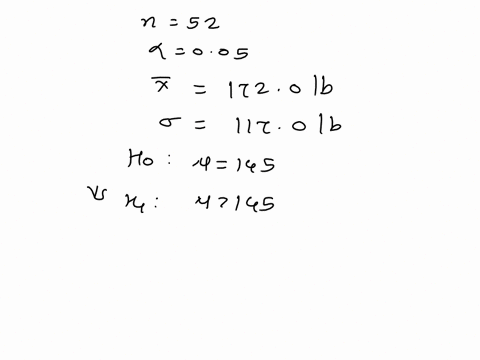 n = 52
α = 0.05
x̄ = 172.0 lb
σ = 117.0 lb
H0 : μ = 145
Vs H1 : μ > 145